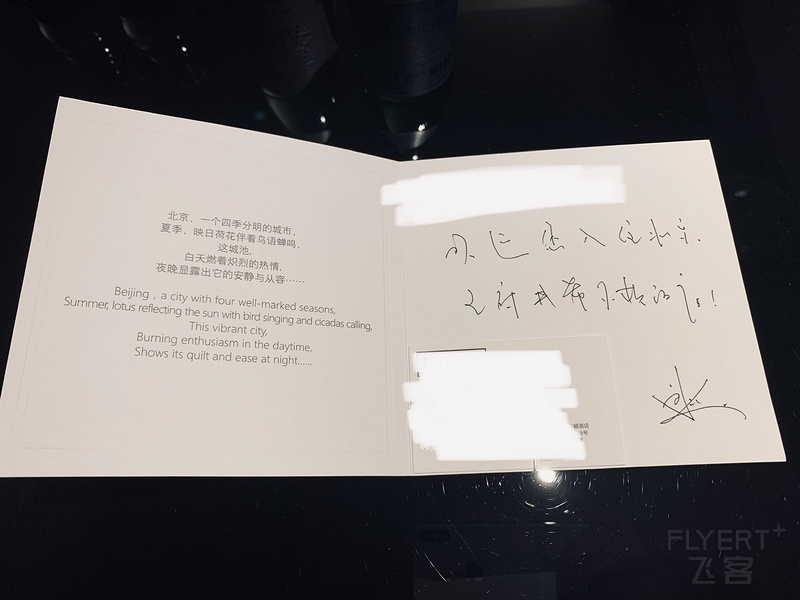 北京，一个四季分明的城市，
夏季，映日荷花伴着鸟语蝉鸣，
这城池，
白天燃着炽烈的热情，
夜晚显露出它的安静与从容……
Beijing , a city with four well-marked seasons,
Summer, lotus reflecting the sun with bird singing and cicadas calling,
This vibrant city,
Burning enthusiasm in the daytime,
Shows its quilt and ease at night......
欢迎您入住北京
王府井希尔顿酒店！
酒店
号
FLYERT+
飞客